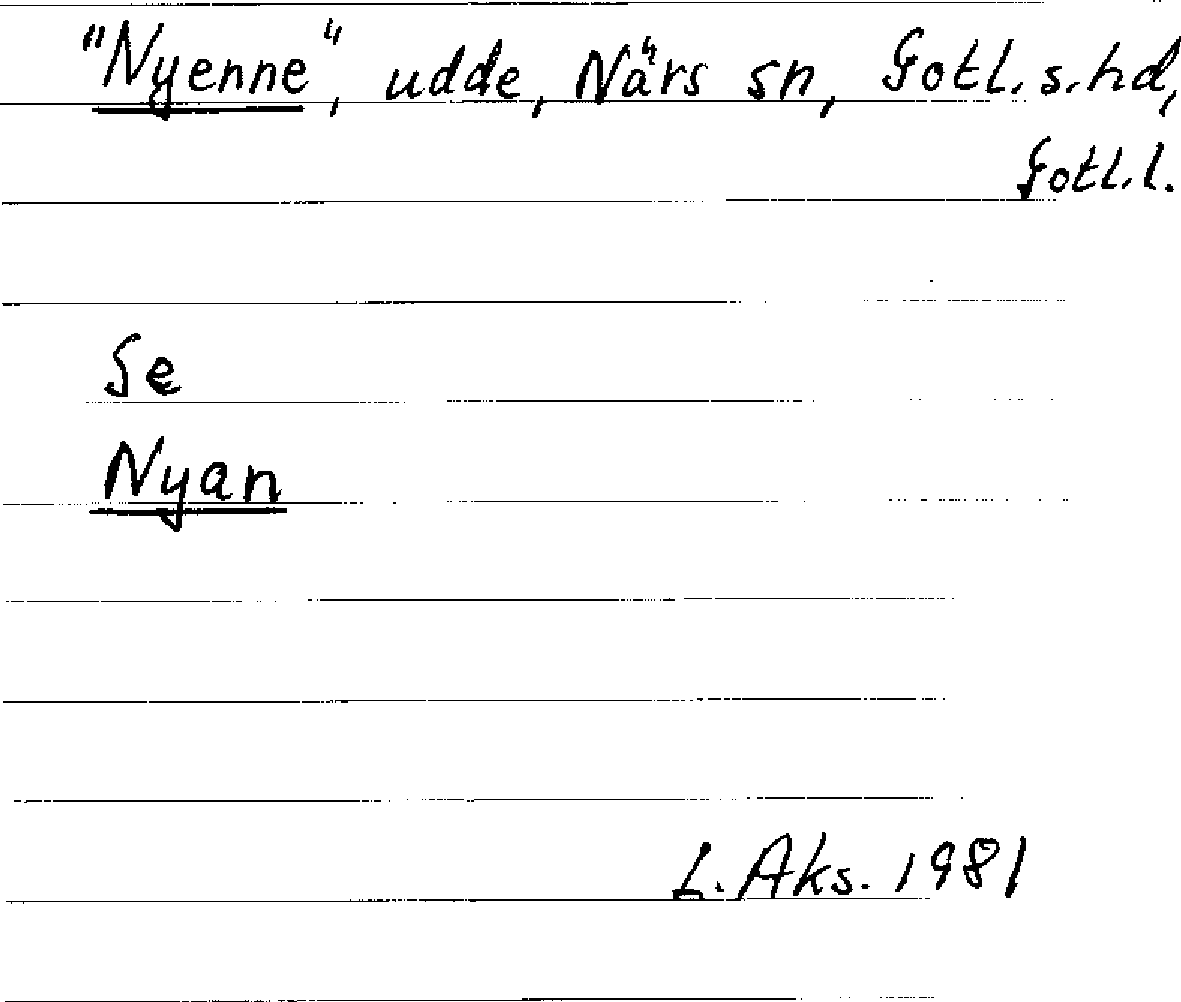 "Nyenne", udde, Närs sn, Gotl. s. hd,
Gotl. l.
Se
Nyan
L. Aks. 1981